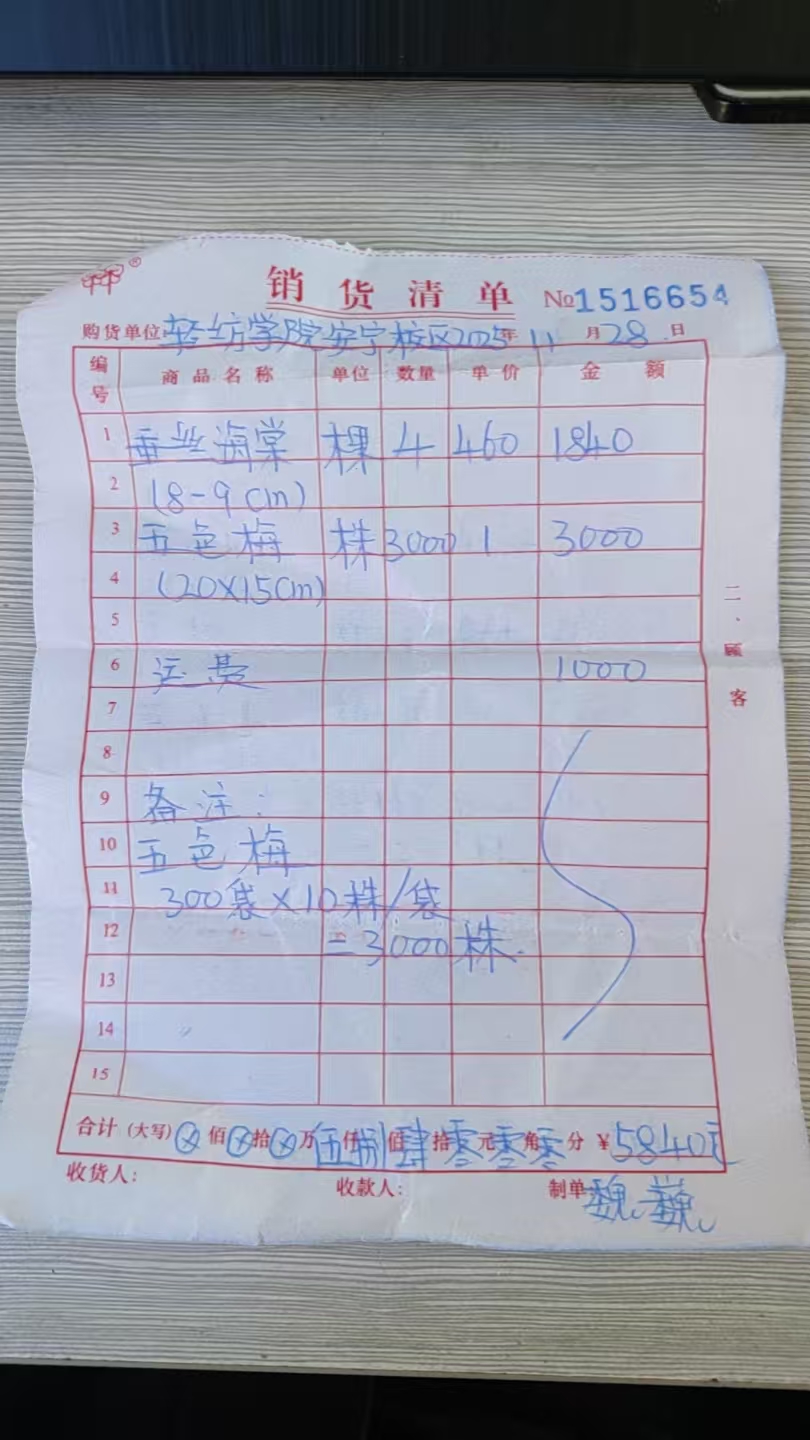 ®
销货清单 №1516654
购货单位 轻纺学院安宁校区 2025年 11月 28日
编号 商品名称 单位 数量 单价 金额
1 垂丝海棠 棵 4 460 1840
2 (8-9cm)
3 五色梅 株 3000 1 3000
4 (20×15cm)
5
6 运费 1000
7
8
9 备注:
10 五色梅
11 300袋×10株/袋
12 =3000株.
13
14
15
合计(大写)⊗佰⊗拾⊗万伍仟捌佰肆拾零元零角零分 ¥5840元
收货人: 收款人: 制单
二、顾客